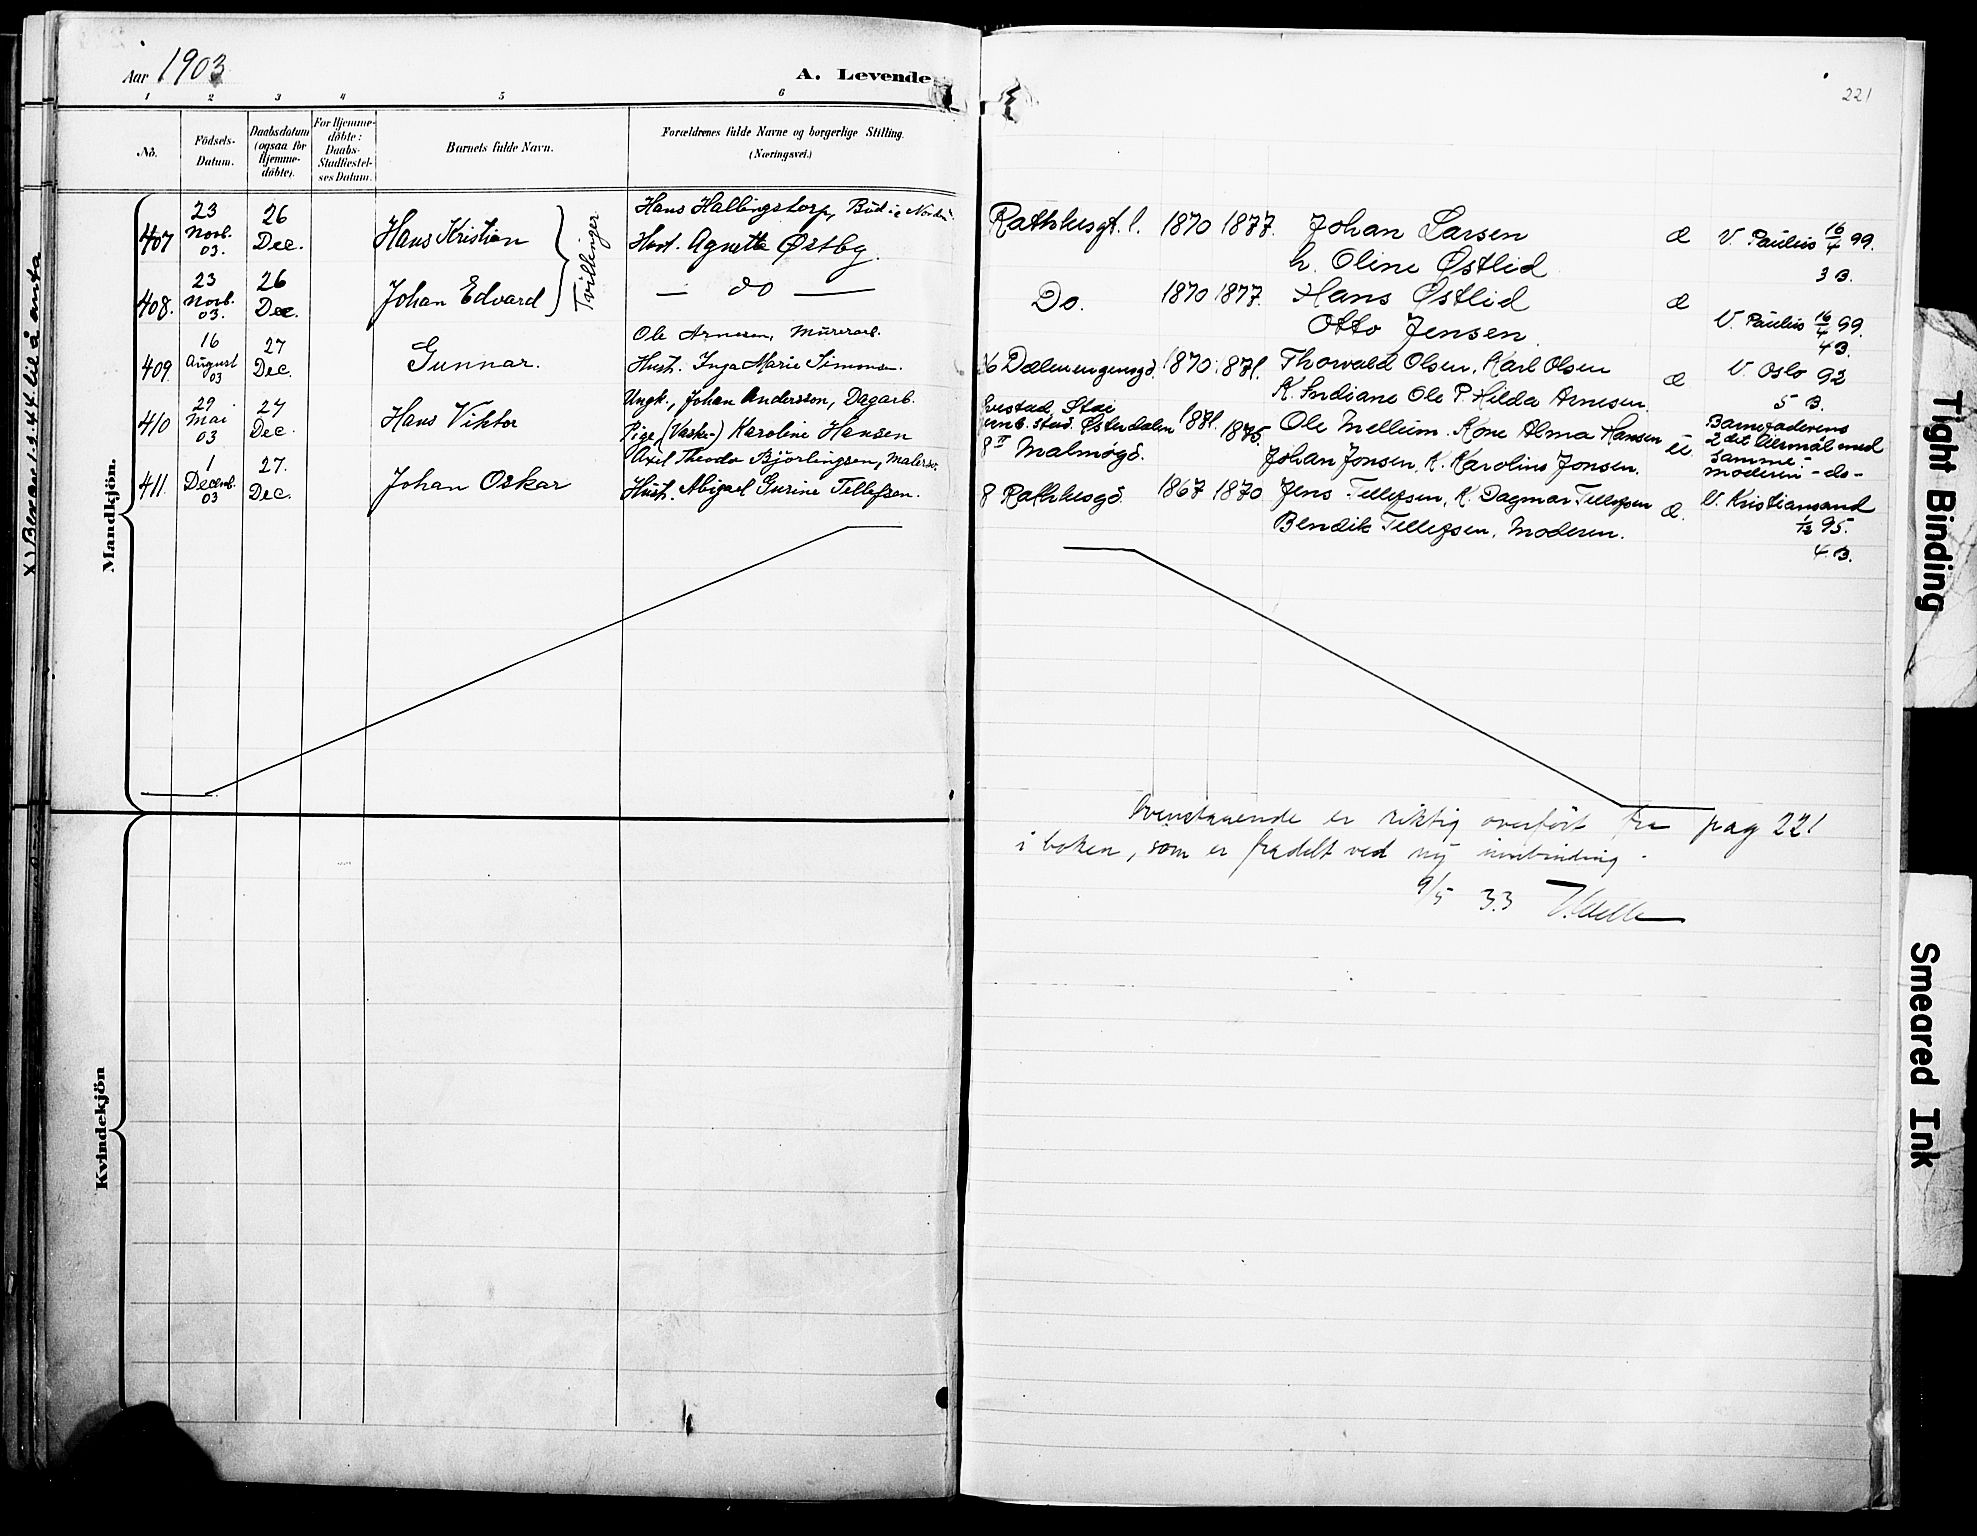 Aar 1903
A. Levende
221
1 2 3 4 5 6
No.
Födsels-
Datum.
Daabsdatum
(ogsaa for
Hjemme-
döbte).
For Hjemme-
döbte:
Daabs-
Stadfæstel-
ses Datum.
Barnets fulde Navn.
Forældrenes fulde Navne og borgerlige Stilling.
(Næringsvei.)
Mandkjön.
407
23
Novb.
03.
26
Dec.
Hans Kristian
Tvillinger
Hans Hallingstorp, Bud i
Hust. Agnette Østby.
Rathhusgt. 1. 1870 1877. Johan Larsen
h. Oline Østlid
æ
V. Paulus 16/4 99.
3 B.
408.
23
Novb.
03.
26
Dec.
Johan Edvard
— do —
Do. 1870 1877. Hans Østlid
Otto Jensen.
æ
V. Paulus 16/4 99.
4 B.
409
16
August
03
27
Dec.
Gunnar.
Ole Arnesen, Murerarb.
Hust. Inga Marie
Dælenengengd. 1870. 1871. Thorvald Olsen, Karl Olsen
K. Indiane Ole P. Hilda Arnesen.
æ
V Oslo 92
5 B.
410
29
Mai
03
27
Dec.
Hans Viktor
Ungk., Johan Andersson, Dagarb.
Pige (Vaske-) Karoline Hansen
Stai
jernb. stad. Østerdalen
8 II Malmøgd.
1871. 1875.
Ole Melleim. Kone Alma Hansen
Johan Jonsen, K. Karolius Jonsen.
Barnefaderens
2det leiermål med
samme.
moderen - do -
411.
1
Decemb.
03
27.
Dec.
Johan Oskar
Axel Theodor Björlingsen, Malersv.
Hust. Abigael Gurine Tellefsen.
8 Rathhusgd. 1867 1870 Jens Tellefsen, K. Dagmar Tellefsen
Bendik Tellefsen, Moderen.
æ.
V. Kristiansand
95.
4 B.
Ovenstaaende er riktig overført fra pag 221
i boken, som er fradelt ved ny innbinding.
9/5 33
Kvindekjön
Tight Binding
Smeared Ink